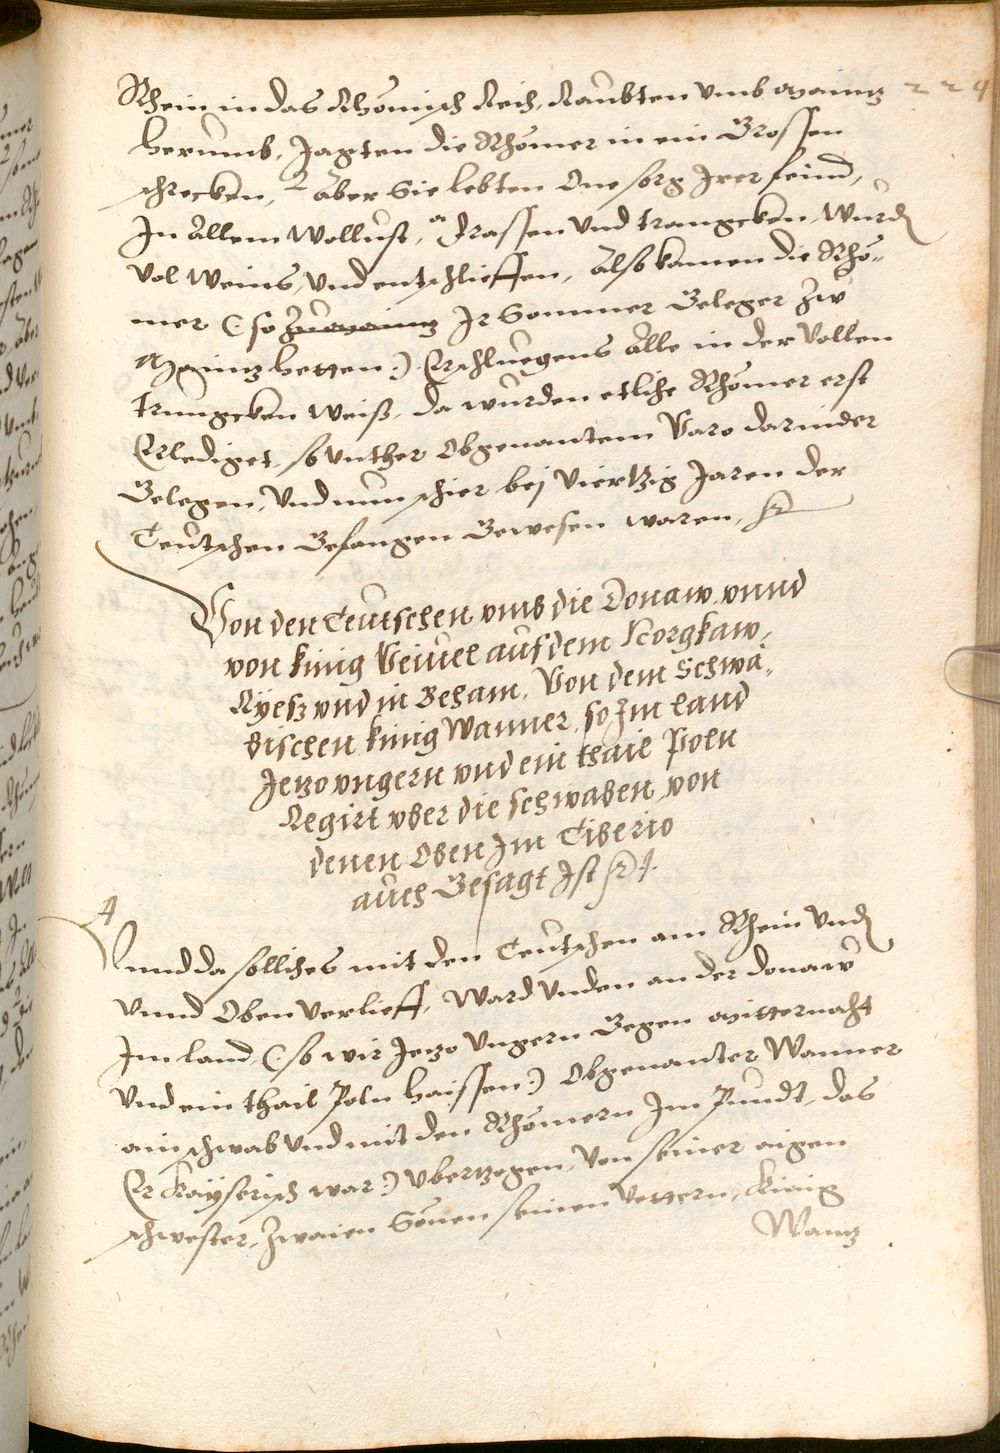 224
Rhein in das Rhömisch Reich, Raubten vmb Maintz
herumb, Jagten die Rhömer in ein Grossen
schrecken, Aber Sie lebten One sorg Irer feind,
In Allem Wollust, frassen Vnd trangcken, Wurd
Vol Weins, Vnd entschlieffen, Also kamen die Rhö-
mer (: so Zu Maintz Ir Sommer Geleger Zw
Maintz hetten :) Erschluegens Alle in der Vollen
trungcken Weiß, da wurden etliche Rhömer erst
Erlediget, so vnther Obgenantem Varo darnider
Gelegen, Vnd nun schier bej Viertzig Jaren der
Teutschen Gefangen Gewesen waren,
Von den Teutschen vmb die Donaw, vnnd
von könig Veiuel auf dem Norgkaw,
Ryesz vnd in Beham, Von dem Schwä-
bischen könig Wanner, so Im land
Jetzo vngern vnd ein thail Poln
Regirt vber die schwaben, von
denen Oben Im Tiberio
auch Gesagt Ist
Vnnd da solliches mit den Teutschen am Rhein Vnd
Vnnd Oben Verlieff, Ward Vnden an der donaw
Im land, (: so wir Jetzo Vngern Gegen Mitternacht
Vnd ein thail Poln haissen :) Obgenanter Wanner
ain schwab Vnd mit den Rhömern Im Pundt, das
Er Kayserisch war :) Vbertzogen, Von seiner aigen
schwester, Zwaien Sönen seinen Vettern, König
Wang